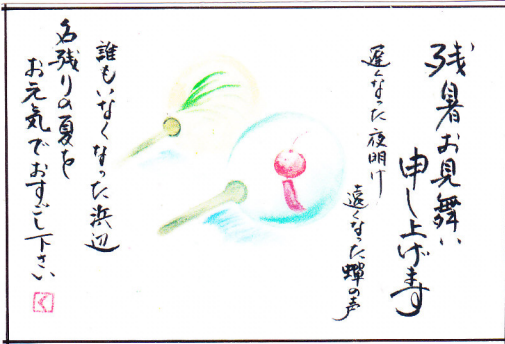 残暑お見舞い
申し上げます
遅くなった夜明け
遠くなった蟬の声
誰もいなくなった浜辺
名残りの夏を
お元気でおすごし下さい
く